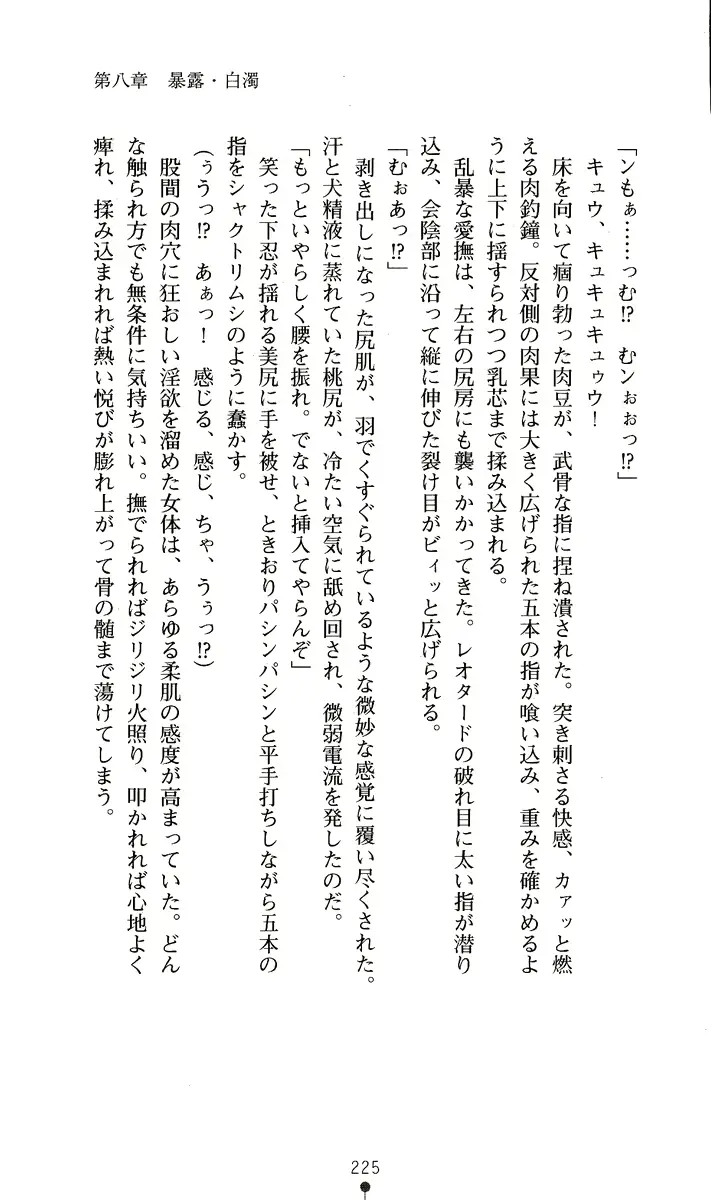 第八章　暴露・白濁
「ンもぁ……っむ!?　むンぉぉっ!?」
キュウ、キュキュキュゥウ！
床を向いて痼り勃った肉豆が、武骨な指に捏ね潰された。突き刺さる快感、カァッと燃
える肉釣鐘。反対側の肉果には大きく広げられた五本の指が喰い込み、重みを確かめるよ
うに上下に揺すられつつ乳芯まで揉み込まれる。
乱暴な愛撫は、左右の尻房にも襲いかかってきた。レオタードの破れ目に太い指が潜り
込み、会陰部に沿って縦に伸びた裂け目がビィッと広げられる。
「むぉあっ!?」
剥き出しになった尻肌が、羽でくすぐられているような微妙な感覚に覆い尽くされた。
汗と犬精液に蒸れていた桃尻が、冷たい空気に舐め回され、微弱電流を発したのだ。
「もっといやらしく腰を振れ。でないと挿入てやらんぞ」
笑った下忍が揺れる美尻に手を被せ、ときおりパシンパシンと平手打ちしながら五本の
指をシャクトリムシのように蠢かす。
（ぅうっ!?　あぁっ！　感じる、感じ、ちゃ、うぅっ!?）
股間の肉穴に狂おしい淫欲を溜めた女体は、あらゆる柔肌の感度が高まっていた。どん
な触られ方でも無条件に気持ちいい。撫でられればジリジリ火照り、叩かれれば心地よく
痺れ、揉み込まれれば熱い悦びが膨れ上がって骨の髄まで蕩けてしまう。
225